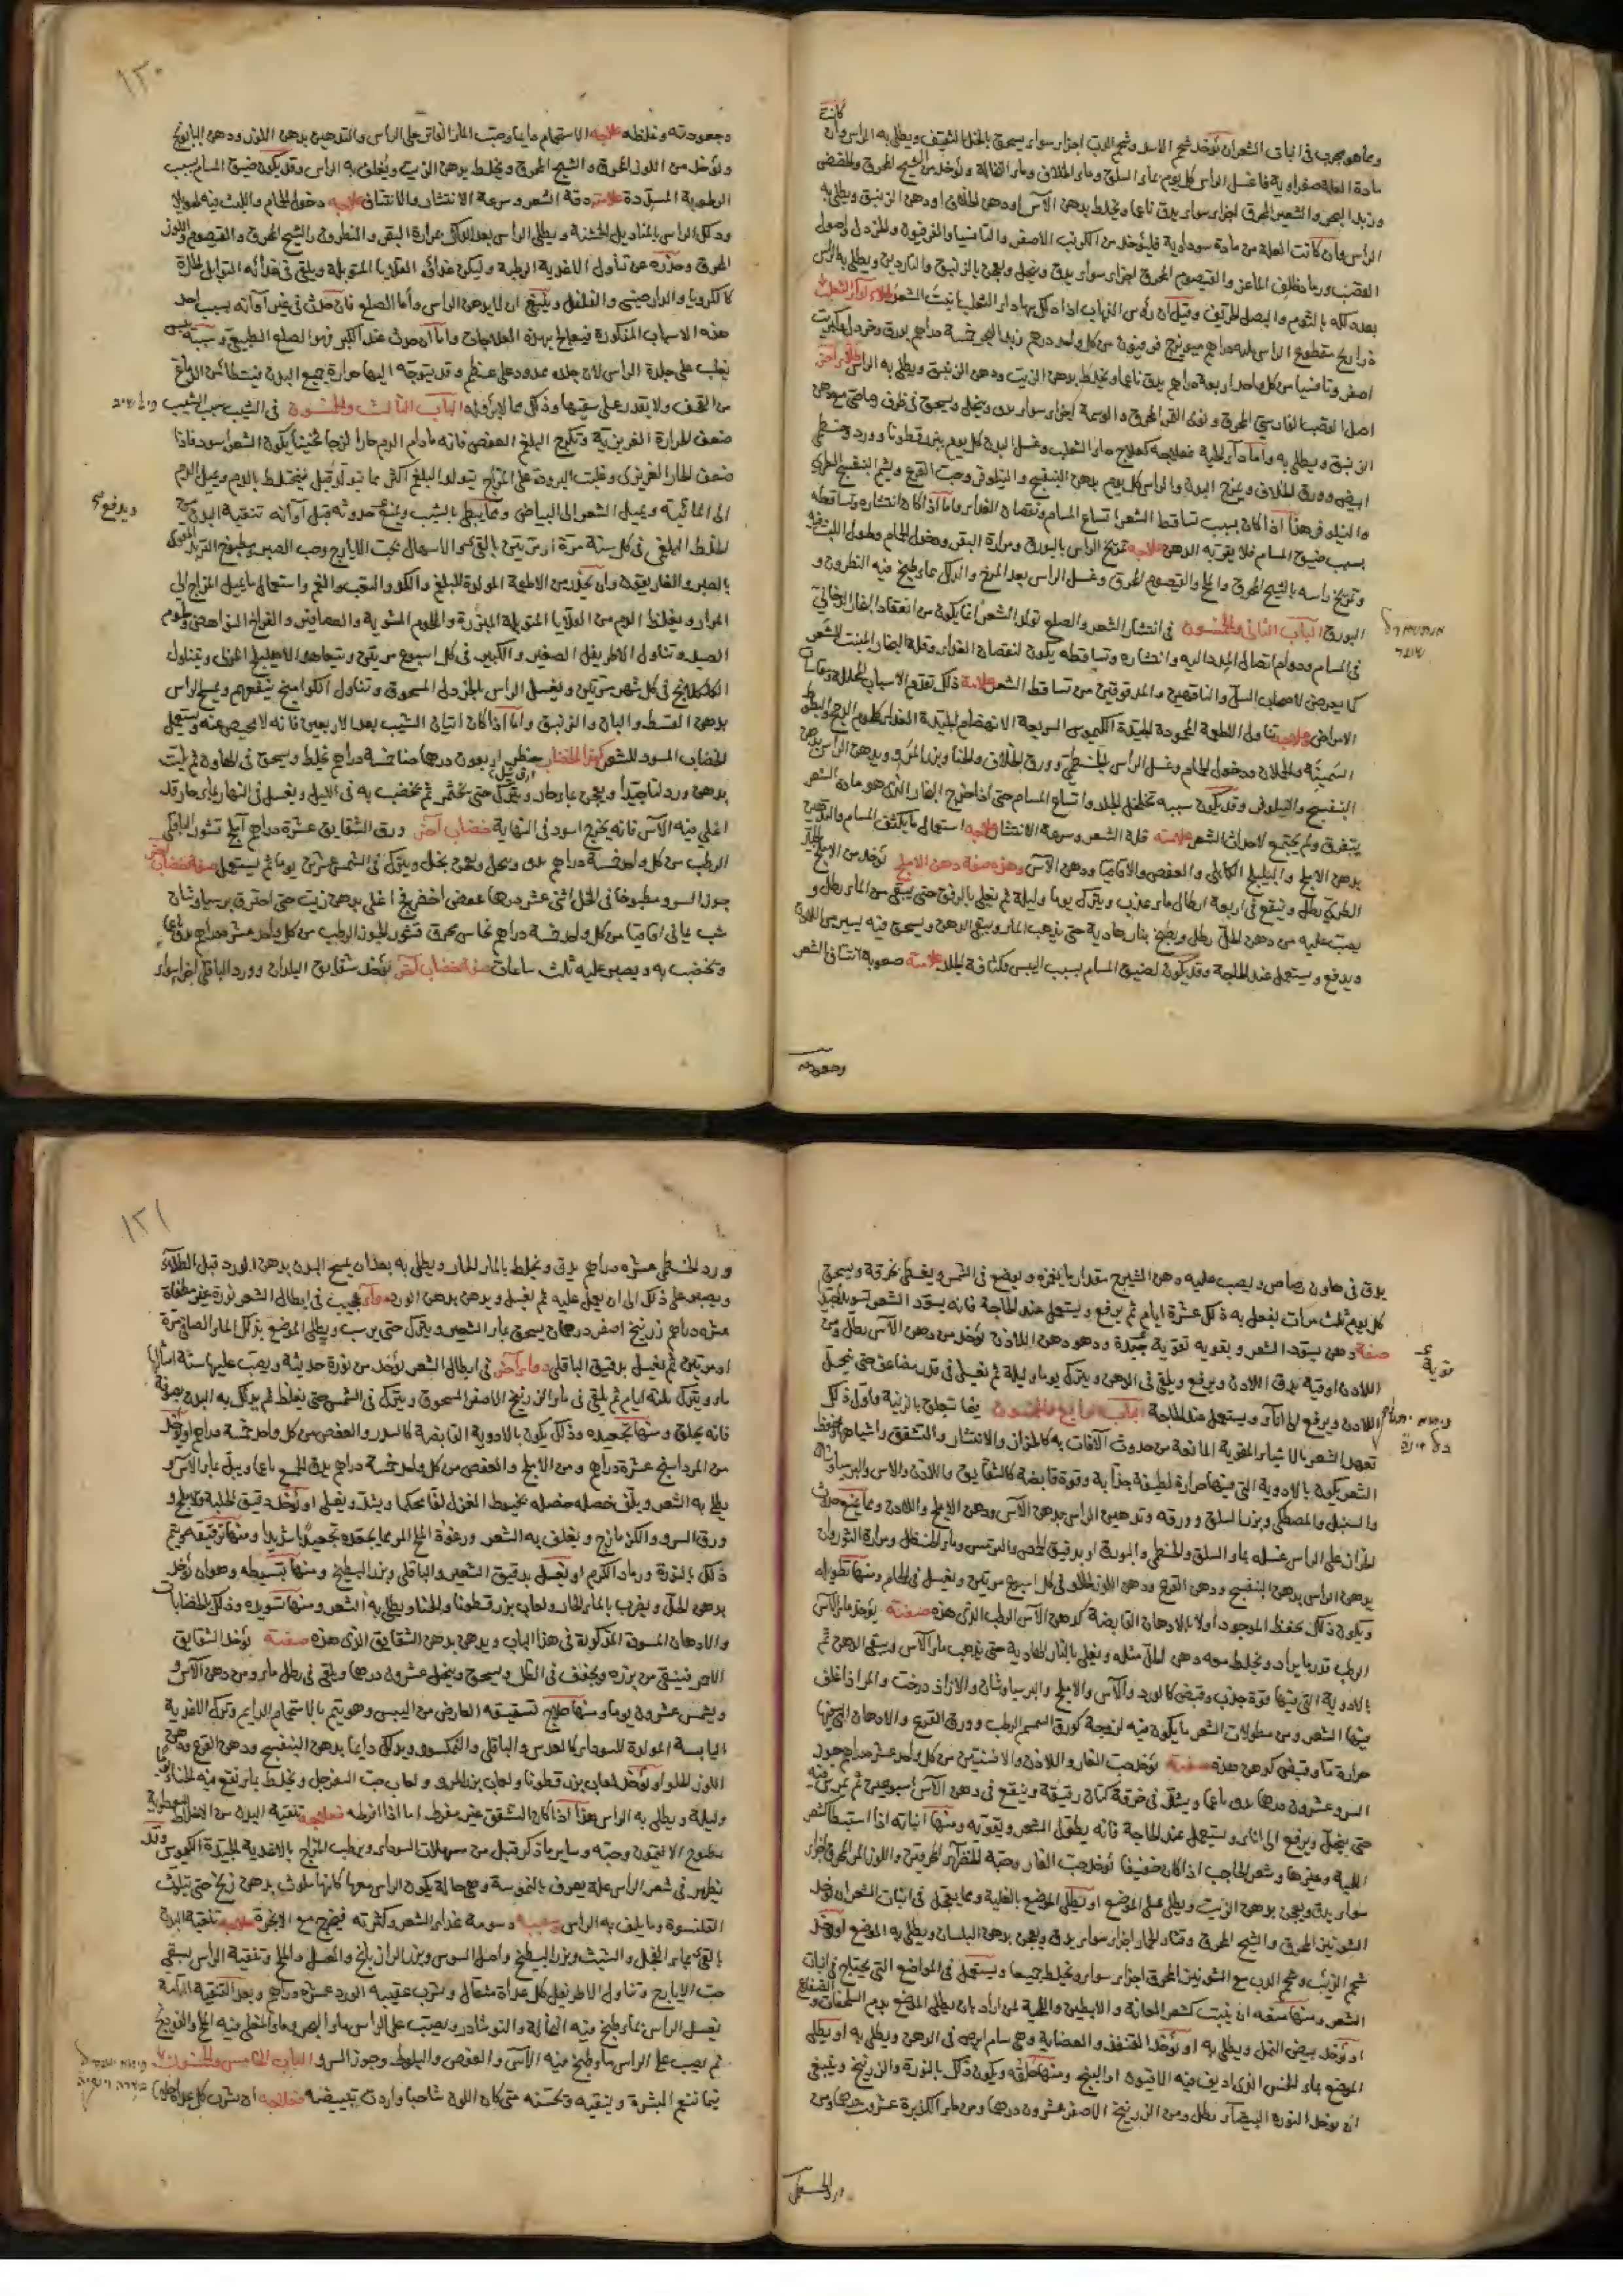 كانت
ومما هو مجرب في انبات الشعر ان يؤخذ شحم الاسد وشحم الدب اجزاء سواء يسحق بالخل الثقيف ويطلى به الراس وان
مادة العلة صفراوية فاغسل الراس كل يوم بماء السلق وماء الخلاف وماء النخالة ويؤخذ من الشيح المحرق والحضض
وزبد البحر والشعير المحرق اجزاء سواء يدق ناعما ويخلط بدهن الآس او دهن الخلاف او دهن الزنبق ويطلى به
الراس وان كانت العلة من مادة سوداوية فليؤخذ من الكرنب الاصفر والتافسيا والفرفيون والخردل واصول
القصب ورماد ظلف الماعز والقيصوم المحرق اجزاء سواء يدق وينخل ويعجن بالزنبق والناردين ويطلى به الراس
بعد دلكه بالثوم والبصل الحريف وقيل ان رؤس الذباب اذا دلك بها داء الثعلب انبت الشعر
ذراريح مقطوع الراس ثلثة دراهم ميويزج فرفيون من كل واحد درهم زبد البحر خمسة دراهم بورق وخردل وكبريت
اصفر وتافسيا من كل واحد اربعة دراهم يدق ناعما ويخلط بدهن الزيت ودهن الزنبق ويطلى به الراس طلاء آخر
اصل القصب الفارسي المحرق ونوى التمر المحرق والوسمة اجزاء سواء يدق وينخل ويسحق في ظرف رصاص مع دهن
الزنبق ويطلى به واما داء الحية فعلاجه كعلاج داء الثعلب وغسل البدن كل يوم ببزر قطونا وورد وخطمي
ابيض وورق الخلاف ومرخ البدن والراس كل يوم بدهن البنفسج والنيلوفر وحب القرع وشم البنفسج الطري
والنيلوفر هذا اذا كان بسبب تساقط الشعر اتساع المسام ونقصان الغذاء واما اذا كان انتشاره وتساقطه
بسبب ضيق المسام فلا يقربه الدهن علاجه تمريخ الراس بالبورق ومرارة البقر ودخول الحمام وطول اللبث فيه
وتمريخ راسه بالشيح المحرق والملح والقيصوم المحرق وغسل الراس بعد المرخ والدلك بماء طبخ فيه النطرون و
البورق الباب الثاني والخمسون في انتشار الشعر والصلع تولد الشعر انما يكون من انعقاد البخار الدخاني
في المسام ودوام اتصال المدد اليه وانتشاره وتساقطه يكون لنقصان الغذاء وقلة البخار المنبت للشعر
كما يعرض لاصحاب السل والناقهين والمدقوقين من تساقط الشعر علامة ذلك تقدم الاسباب المحللة ومقاساة
الامراض علاجه تناول الاطعمة المحمودة الجيدة الكيموس السريعة الانهضام الجيدة الغذاء كلحوم الدجاج والبط
السمينة والحملان ودخول الحمام وغسل الراس بالخطمي وورق الخلاف والحنا وبزر المرو ودهن الراس بدهن
البنفسج والنيلوفر وقد يكون سببه تخلخل الجلد واتساع المسام حتى اذا خرج البخار الذي هو مادة الشعر
يتفرق ولم يجتمع لاحداث الشعر علامته قلة الشعر وسرعة الانتشار علاجه استعمال ما يكثف المسام والتدهين
بدهن الاملج والهليلج الكابلي والعفص والاقاقيا ودهن الآس وهذه صفة دهن الاملج يؤخذ من الاملج
الطري رطل وينقع في اربعة ارطال ماء عذب ويترك يوما وليلة ثم يغلى بالرفق حتى يبقى من الماء رطل و
يصب عليه من دهن الحل رطل ويطبخ بنار هادية حتى يذهب الماء ويبقى الدهن ويسحق فيه يسير من اللادن
ويرفع ويستعمل عند الحاجة وقد يكون لضيق المسام بسبب اليبس وكثافة الجلد علامته صعوبة انتتاف الشعر
وجعودته
١٢٠
وجعودته وغلظه علاجه الاستحمام دايما وصب الماء الفاتر على الراس والتدهين بدهن اللوز ودهن البابونج
ويؤخذ من اللوز المحرق والشيح المحرق ويخلط بدهن الزيت ويغلف به الراس وقد يكون ضيق المسام بسبب
الرطوبة المسددة علامته دقة الشعر وسرعة الانتشار والانتتاف علاجه دخول الحمام واللبث فيه طويلا
ودلك الراس بالمناديل الخشنة ويطلى الراس بعد الدلك بمرارة البقر والنطرون والشيح المحرق والقيصوم واللوز
المحرق وحذره عن تناول الاغذية الرطبة وليكن غذائه القلايا المتوبلة ويلقى في غذائه التوابل الحارة
كالكرويا والدارصيني والفلفل وينبغي ان لا يدهن الراس واما الصلع فان حدث في غير آوانه بسبب احد
هذه الاسباب المذكورة فيعالج بهذه المعالجات واما ان حدث عند الكبر فهو الصلع الطبيعي وسببه يبس
يغلب على جلدة الراس لان جلده ممدود على عظم وقد يتوجه اليها حرارة جميع البدن فيتطامن الدماغ
من القحف ولا يقدر على سقيها وذلك مما لا برؤ له الباب الثالث والخمسون في الشيب سبب الشيب
ضعف الحرارة الغريزية وتكرج البلغم العفص فانه مادام الدم حارا لزجا ثخينا يكون الشعر اسود فاذا
ضعف الحار الغريزي وغلبت البرودة على المزاج يتولد البلغم اكثر مما تولد قبل فيختلط بالدم ويميل الدم
الى المائية ويميل الشعر الى البياض ومما يبطئ بالشيب ويمنع حدوثه قبل آوانه تنقية البدن من
الخلط البلغمي في كل سنة مرة او مرتين بالقيء والاسهال بحب الايارج وحب الصبر وبطبوخ التربد المقوى
ويدفع
بالصبر والغاريقون وان يحذر من الاطعمة المولدة للبلغم والكد والتعب والغم واستعمال ما يميل المزاج الى
المرار ويغلظ الدم من القلايا المتوبلة المبزرة واللحوم المشوية والعصافير والفراخ النواهض ولحوم
الصيد وتناول الاطريفل الصغير والكبير في كل اسبوع مرتين ويتعاهد الاهليلج المربى ويتناول
الكلكلانج في كل شهر مرتين ويغسل الراس بالخردل المسحوق وتناول اكلوا منج ينفعهم ويمسح الراس
بدهن القسط والبان والزنبق واما اذا كان اتيان الشيب بعد الاربعين فانه لا محيص عنه ويستعمل
الخضاب المسود للشعر كهذا الخضاب حنظر اربعون درهما حنا خمسة دراهم يخلط ويسحق في الهاون ثم يلت
بدهن ورد لتا جيدا ويعجن بماء حار ويترك حتى يختمر ثم يخضب به في الليل ويغسل في النهار بماء حار قد
اغلي فيه الآس فانه يخرج اسود في النهاية خضاب آخر ورق الشقايق عشرة دراهم آملج قشور الباقلى
الرطب من كل واحد خمسة دراهم يدق وينخل ويعجن بخل ويترك في الشمس عشرين يوما ثم يستعمل صفة خضاب آخر
جوز السرو مطبوخا في الخل اثني عشر درهما عفص اخضر اغلي بدهن زيت حتى احترق برسياوشان
شب يماني اقاقيا من كل واحد خمسة دراهم نحاس محرق قشور الجوز الرطب من كل واحد عشرة دراهم يدق ناعما
ويخضب به ويصبر عليه ثلث ساعات صفة خضاب آخر يؤخذ شقايق البلدان وورد الباقلى اجزاء سواء
يدق في هاون رصاص ويصب عليه دهن الشيرج مقدار ما يغمره ويوضع في الشمس ويغطى بخرقة ويسحق
كل يوم ثلث مرات يفعل به ذلك عشرة ايام ثم يرفع ويستعمل عند الحاجة فانه يسود الشعر تسويدا جيدا
صفة دهن يسود الشعر ويقويه تقوية جيدة وهو دهن اللادن يؤخذ من دهن الآس رطل ومن
اللادن اوقية يدق اللادن ويرفع ويلقى في الدهن ويترك يوما وليلة ثم يغلى في قدر مضاعف حتى ينحل
اللادن ويرفع الى اناء ويستعمل عند الحاجة الباب الرابع والخمسون فيما يتعلق بالزينة واول ذلك
تعهد الشعر بالاشياء المقوية المانعة من حدوث الآفات به كالحزاز والانتشار والتشقق واشباهها وحفظ
الشعر يكون بالادوية التي فيها حرارة لطيفة جذابة وقوة قابضة كالشقايق واللادن والاس والبرسياوشان
والسنبل والمصطكى وبزر السلق وورقه وتدهين الراس بدهن الآس ودهن الاملج واللادن ومما يمنع حدوث
الحزاز على الراس غسله بماء السلق والخطمي والبورق او بدقيق الحمص والترمس وماء الحنظل ومرارة الثور وان
يدهن الراس بدهن البنفسج ودهن القرع ودهن اللوز الحلو في كل اسبوع مرتين ويغسل في الحمام ومنها تطويله
ويكون ذلك بحفظ الموجود اولا بالادهان القابضة كدهن الآس الرطب الذي هذه صفته يؤخذ ماء الآس
الرطب قدر ما يراد ويخلط معه دهن الحل مثله ويغلى بالنار الهادية حتى يذهب ماء الآس ويبقى الدهن ثم
بالادوية التي فيها قوة جذب وقبض كالورد والآس والاملج والبرسياوشان والازاد درخت والمر اذا غلف
فيها الشعر ومن مطولات الشعر ما يكون فيه لزوجة كورق السمسم الرطب وورق القرع والادهان التي فيها
حرارة ما وقبض كدهن هذه صفته يؤخذ حب الغار واللادن والافسنتين من كل واحد عشرة دراهم جوز
السرو عشرون درهما يدق ناعما ويشد في خرقة كتان رقيقة وينقع في دهن الآس اسبوعين ثم يمرس فيه
حتى ينحل ويرفع الى اناء ويستعمل عند الحاجة فانه يطول الشعر ويقويه ومنها انباته اذا استبطأ كشعر
اللحية وغيرها وشعر الحاجب اذا كان خفيفا يؤخذ حب الغار وحبة الخضراء المحرقين واللوز المر المحرق اجزاء
سواء يدق ويعجن بدهن الزيت ويطلى على الموضع او يطلى الموضع بالغالية ومما يعمل في انبات الشعر ان يؤخذ
الشونيز المحرق والشيح المحرق وقثاء الحمار اجزاء سواء يدق ويعجن بدهن البلسان ويطلى به الموضع او يؤخذ
شحم الذئب وشحم الدب مع الشونيز المحرق اجزاء سواء ويخلط جميعا ويستعمل في المواضع التي يحتاج في انبات
الشعر ومنها منعه ان ينبت كشعر العانة والابطين واللحية لمن اراد بان يطلى الموضع بدم السلحفاة والضفادع
او يؤخذ بيض النمل ويطلى به او يؤخذ القنفذ والعضاية وهي سام ابرص في الدهن ويطلى به او يطلى
الموضع بماء الخس الذي اديف فيه الافيون او البنج ومنها حلقه ويكون ذلك بالنورة والزرنيخ وينبغي
ان يؤخذ النورة البيضاء رطل ومن الزرنيخ الاصفر عشرون درهما ومن ماء الكزبرة عشرون درهما ومن
ورد الخطمي
١٢١
ورد الخطمي عشرة دراهم يدق ويخلط بالماء الحار ويطلى به بعد ان يمسح البدن بدهن الورد قبل الطلاء
ويصبر على ذلك الى ان يعمل عليه ثم يغسل ويدهن بدهن الورد دواء عجيب في ابطال الشعر نورة غير مطفاة
عشرة دراهم زرنيخ اصفر درهمان يسحق بماء الشعير ويترك حتى يرسب ويطلى الموضع بذلك الماء الصافي مرة
او مرتين ثم يغسل بدقيق الباقلى دواء آخر في ابطال الشعر يؤخذ من نورة حديثة ويصب عليها ستة امثالها
ماء ويترك ثلثة ايام ثم يلقى في ماء الزرنيخ الاصفر المسحوق ويترك في الشمس حتى يغلظ ثم يدلك به البدن بصوفة
فانه يحلق ومنها تجعيده وذلك يكون بالادوية القابضة كالسدر والعفص من كل واحد خمسة دراهم او يؤخذ
من المرداسنج عشرة دراهم ومن الاملج والعفص من كل واحد خمسة دراهم يدق الجميع ناعما ويبل بماء الآس و
يطلى به الشعر ويلف خصله خصله بخيوط الغزل لفا محكما ويشد ويغلى او يؤخذ دقيق الحلبة والاملج و
ورق السرو والكزمازج ويغلف به الشعر ورغوة الخ المر مما يجعده تجعيدا شديدا ومنها ترقيقه ويتم
ذلك بالنورة ورماد الكرم او يغسل بدقيق الشعير والباقلى وبزر البطيخ ومنها تبسيطه وهو ان يؤخذ
بدهن الحل ويضرب بالماء الحار ولعاب بزر قطونا والحنا ويطلى به الشعر ومنها تسويده وذلك بالخضابات
والادهان المسودة المذكورة في هذا الباب ويدهن بدهن الشقايق الذي هذه صفته يؤخذ الشقايق
الاحمر فينقى من بزره ويجفف في الظل ويسحق وينخل عشرون درهما ويلقى في رطل ماء ومن دهن الآس و
ويشمس عشرون يوما ومنها علاج تشقيقه العارض من اليبس وهو يتم بالاستحمام الدايم وترك الاغذية
اليابسة المولدة للسوداء كالعدس والباقلى والنمكسود ويدلك دايما بدهن البنفسج ودهن القرع ودهن
اللوز الحلو او يؤخذ لعاب بزر قطونا ولعاب بزر المرو ولعاب حب السفرجل ويخلط بماء نقع فيه الحنا يوما
وليلة ويطلى به الراس هذا اذا كان التشقق غير مفرط اما اذا افرط فعلاجه تنقية البدن من الاخلاط السوداوية
بمطبوخ الافتيمون وحبه وساير ما ذكر قبل من مسهلات السوداء ويرطب المزاج بالاغذية الجيدة الكيموس وقد
يظهر في شعر الراس علة يعرف بالدسومة وهي حالة يكون الراس معها كانها ملوث بدهن زنخ حتى يتلوث
القلنسوة وما يلف به الراس وسببه دسومة غذاء الشعر وكثرته فيخرج مع الابخرة علاجه تنقية البدن
بالقيء بماء الفجل والشبث وبزر البطيخ واصل السوس وبزر الرازيانج والعسل والملح وتنقية الراس بسقي
حب الايارج وتناول الاطريفل كل غداة مثقال وشرب عقيبه الورد عشرة دراهم وبعد التنقية التامة
يغسل الراس بماء طبخ فيه النخالة والنوشادر ويصب على الراس ماء البحر وماء اغلي فيه الملح والفودنج
ثم يصب على الراس ماء طبخ فيه الآس والعفص والبلوط وجوز السرو الباب الخامس والخمسون
فيما ينعم البشرة وينقيه ويحسنه متى كان اللون شاحبا واردت تبييضه فعلاجه ان يشرب كل غداة